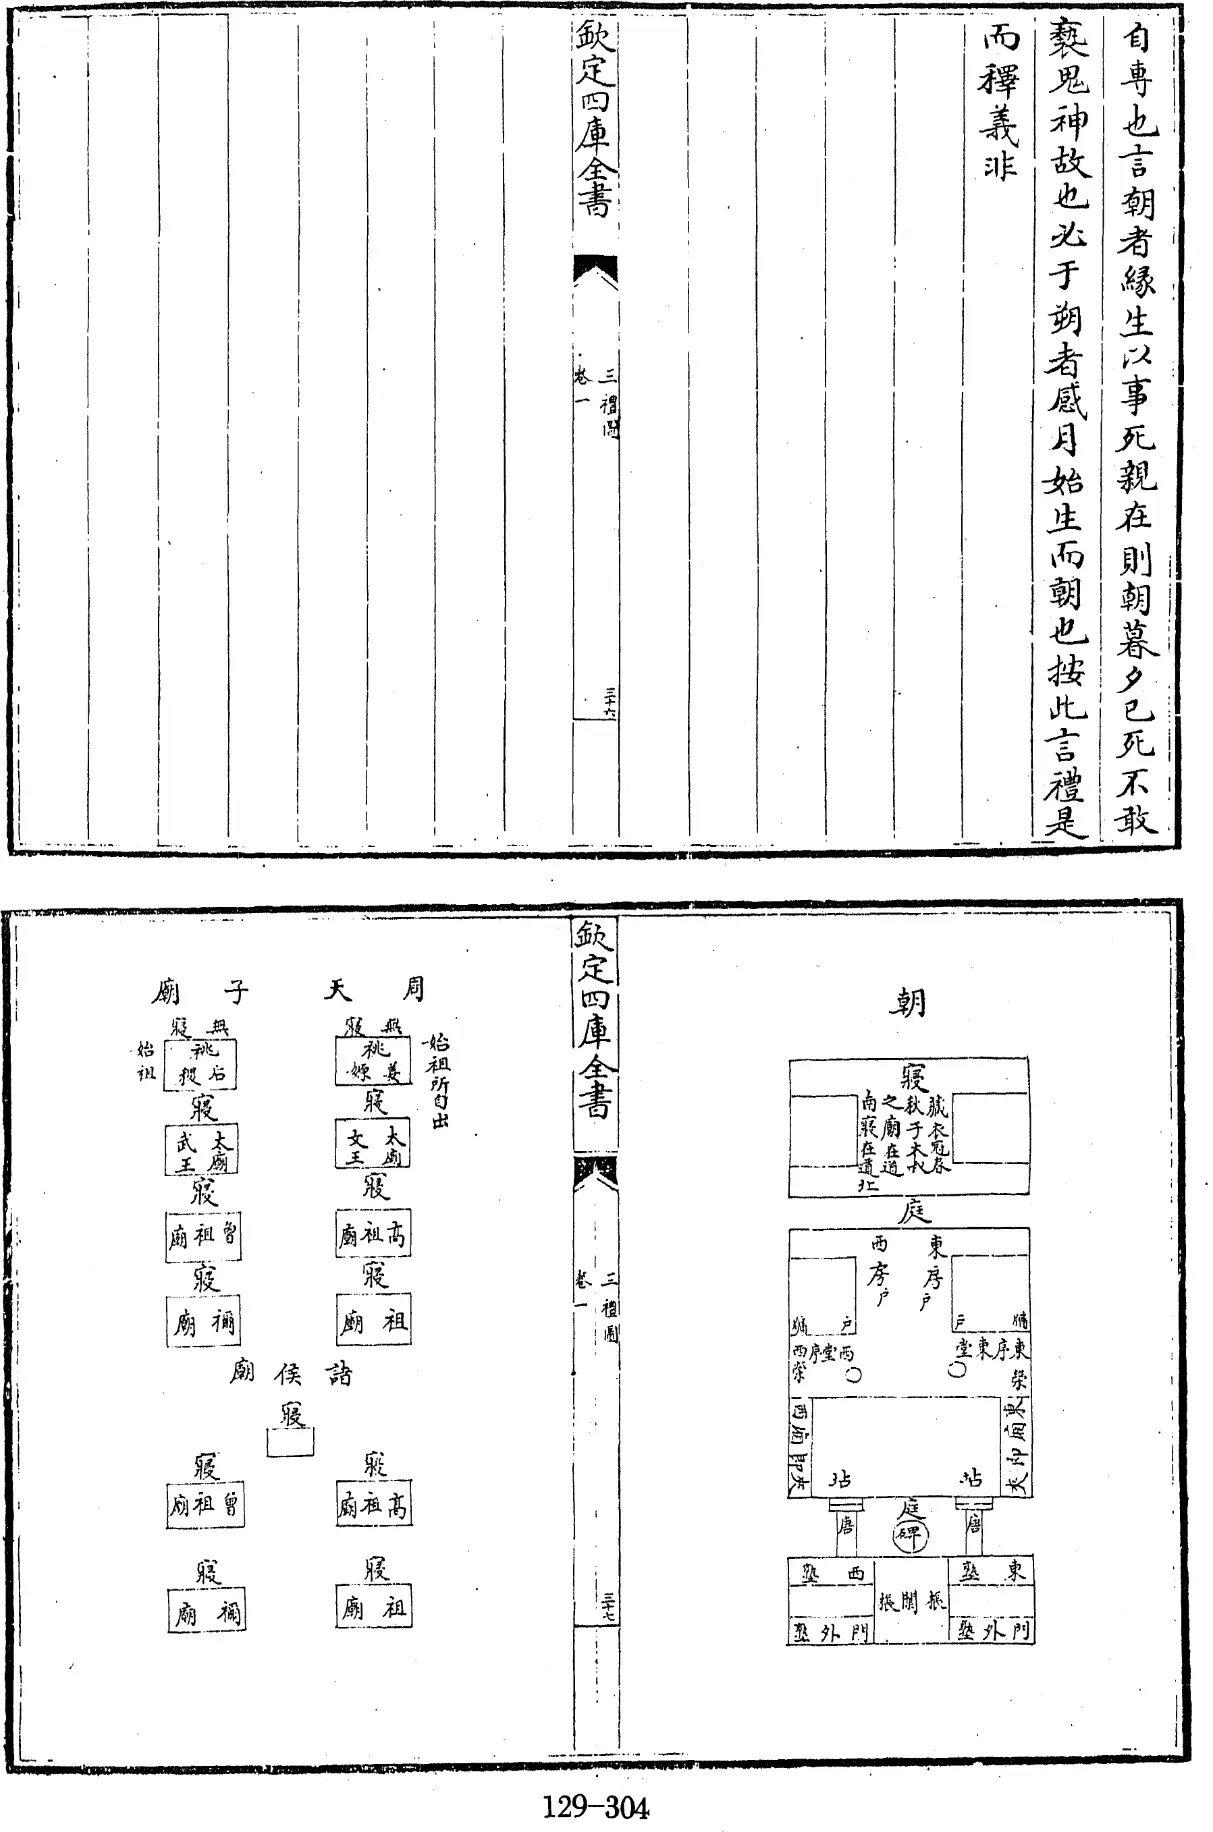 自専也言朝者縁生以事死親在則朝暮夕已死不敢
褻鬼神故也必于朔者感月始生而朝也按此言禮是
而釋義非
欽定四庫全書
三禮圖
卷一
三十六
朝
寢
藏衣冠春
秋子太叔
之廟在道
南寢在道北
庭
東房戶
西房戶
牖
戶
戶
牖
東序東堂
西堂序西
東榮
西榮
坫
坫
庭
碑
唐
唐
東塾
西塾
棖闑棖
門外塾
門外塾
欽定四庫全書
三禮圖
卷一
三十七
周天子廟
始祖所自出
無寢
祧
姜嫄
寢
太廟
文王
寢
高祖廟
寢
祖廟
無寢
始祖
祧
后稷
寢
太廟
武王
寢
曾祖廟
寢
禰廟
諸侯廟
寢
寢
高祖廟
寢
祖廟
寢
曾祖廟
寢
禰廟
129-304